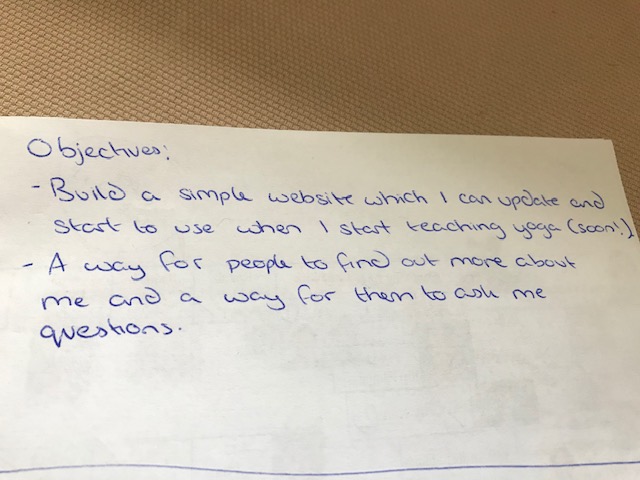 Objectives:
- Build a simple website which I can update and
start to use when I start teaching yoga (soon!)
- A way for people to find out more about
me and a way for them to ask me
questions.